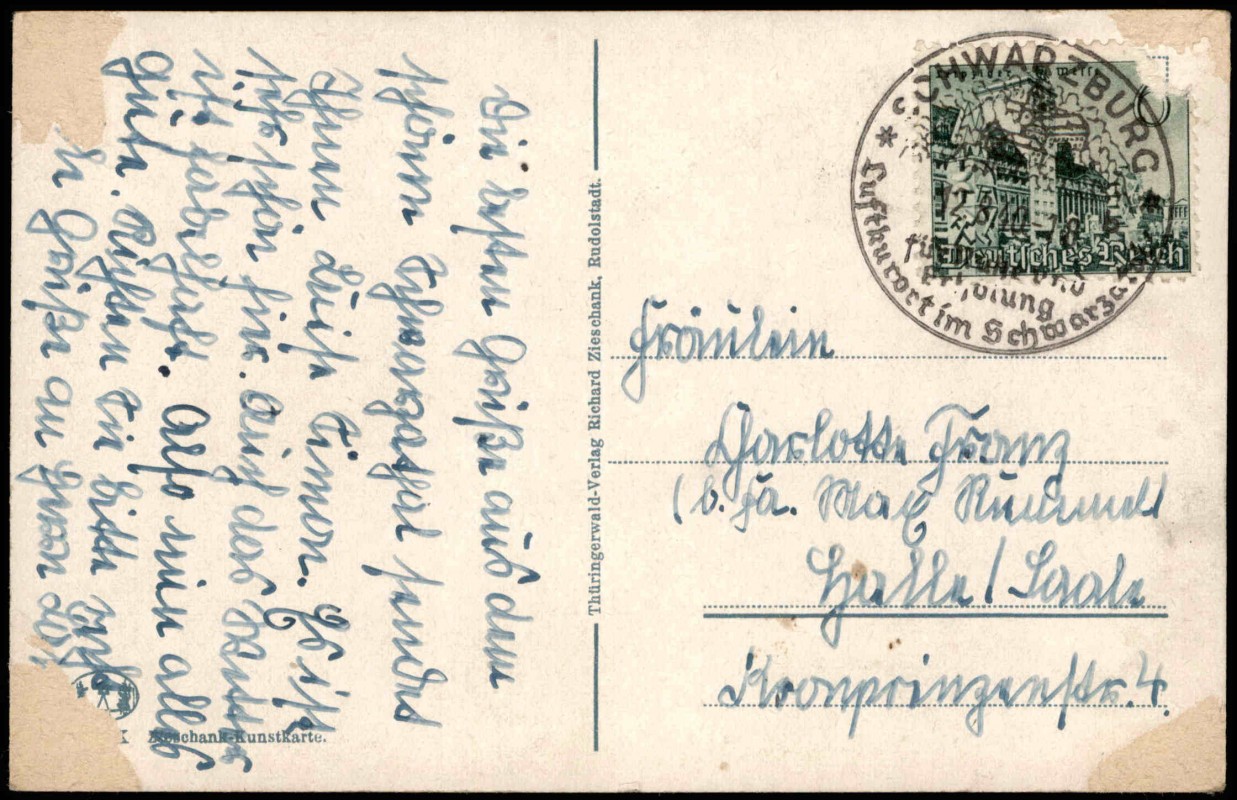 Die besten Grüße aus dem
schönen Schwarzatal sendet
Ihnen Luise Simon. Es ist
sehr schön hier. Auch das Wetter
ist fabelhaft. Also nun alles
gute. Richten Sie bitte
Grüße an Herrn
Zieschank-Kunstkarte.
Thüringerwald-Verlag Richard Zieschank, Rudolstadt.
SCHWARZBURG
Leipziger Messe
Deutsches Reich
Erholung
Luftkurort im Schwarzatal
Fräulein
Charlotte Franz
(b. Fa. Max Rummel
Halle/Saale
Kronprinzenstr. 4.